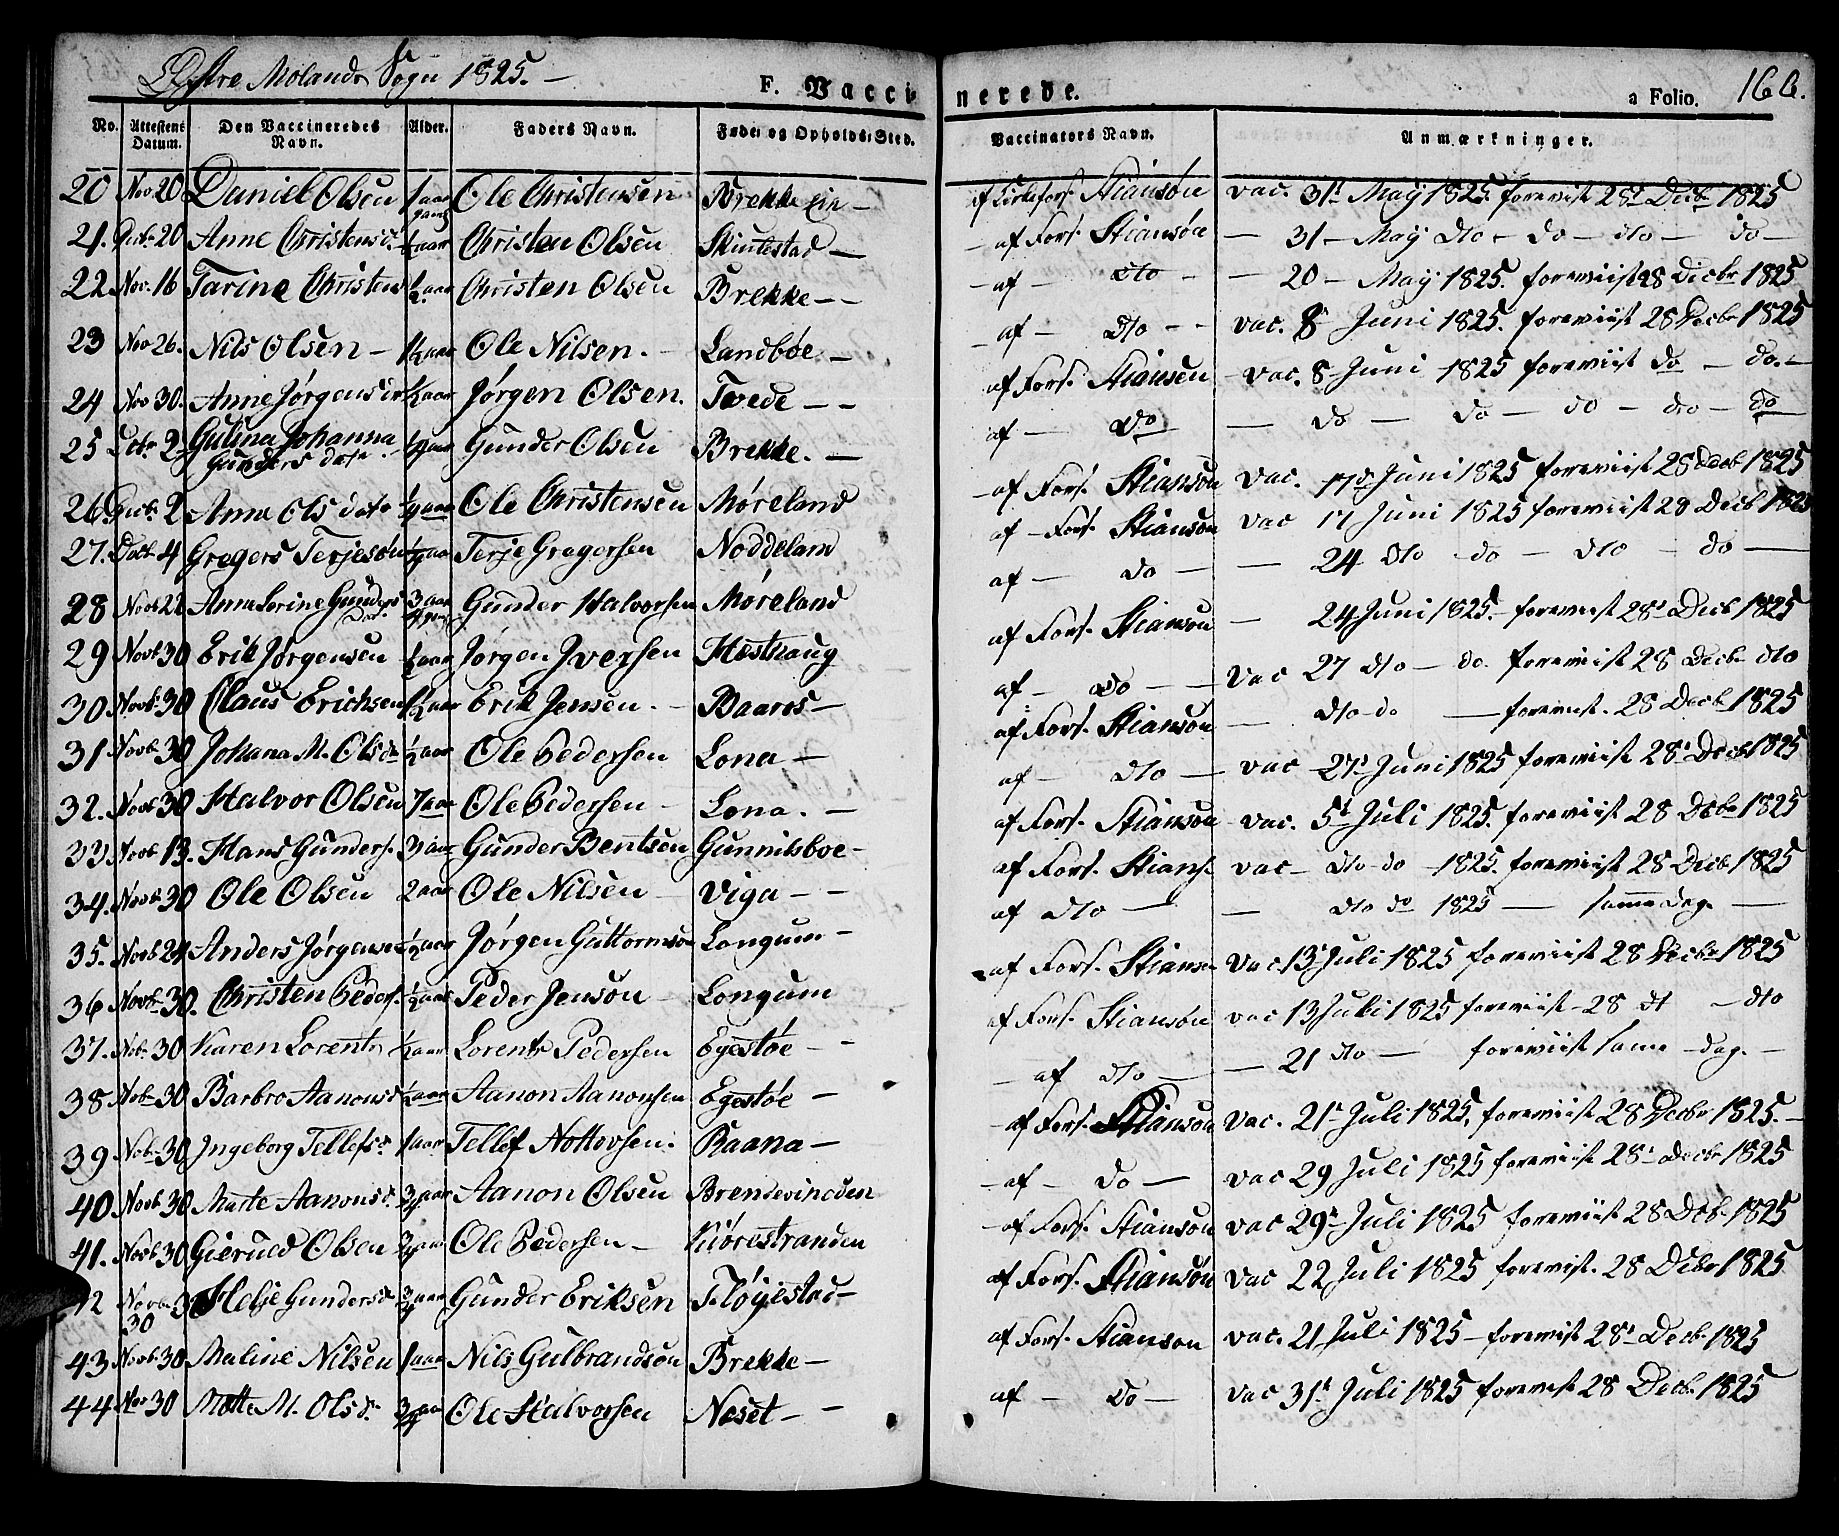 Østre Molands Sogn 1825. —
F. Vaccinerede. a Folio. 166.
No. Attestens Datum. Den Vaccineredes Navn. Alder. Faders Navn. Føde- og Opholds-Sted. Vaccinators Navn. Anmærkninger.
20 Nov 20 Daniel Olsen 1 aar Ole Christensen Brekke — af Stiansøn vac. 31t May 1825. foreviist 28t Decbr 1825
21. 20 Anne Christensd. ½ aar Christen Olsen Skintestad — af Fors. Stiansøn — 31 — May dto — do — dto — do —
22 Nov. 16 Tarine Christens Christen Olsen Brekke — af — dto — — 20 — May 1825. foreviist 28 Decbr 1825
23 Nov 26. Nils Olsen — 1½ aar Ole Nilsen. — Landbøe. — af — dto — vac. 8 Juni 1825. foreviist 28 Decbr 1825
24 Nov 30. Anne Jørgensd ½ aar Jørgen Olsen. Tvede — af Fors. Stiansøn — vac. 8 Juni 1825 foreviist do — do. —
25 2 Gulina Johanna Gunders datr Gunder Olsen Brekke. — af — do — do — do — do — dto — do
26. 2 Anna Ols datr Ole Christensen Møreland — af Fors. Stiansøn vac. 17d Juni 1825 foreviist 28 Decb 1825
27. 4 Gregers Terjesøn Terje Gregersen Noddeland af — Fors. Stiansøn vac 17 Juni 1825 foreviist 28 Decb 1825
28 Novb 22 Anna Serine Gunders Dat. 3 aar Gunder Halvorsen Møreland af — do — — 24 dto do — dto — do —
29 Novb 30 Erik Jørgensen ½ aar Jørgen Iversen Hesthaug af Fors. Stiansøn — 24 Juni 1825. foreviist 28t Decb 1825
30 Novb. 30 Claus Erichsen 1½ aar Erik Jensen. — Baaros — af — do — — vac 27 dto — do. foreviist 28 Decb dto
31 Novb. 30 Johana M. Olsdr ½ aar Ole Pedersen Lona — af Fors. Stiansøn — dto do — foreviist. 28 Decb 1825
32. Novb 30 Halvor Olsen 7 aar Ole Pedersen — Lona. — af — dto — vac 27t Juni 1825 foreviist 28t Decb 1825
33 Novb 13. Hans Gunders. 3 aar Gunder Bentsen Gunnilsboe — af Fors. Stiansøn — vac. 5t Juli 1825. foreviist 28 Decbr 1825
34. Novb. 30 Ole Olsen 2 aar Ole Nilsen — Viga — — af Fors. Stians. vac — dto do — 1825. foreviist 28 Decb 1825
35. Novb 24 Anders Jørgensen ½ aar Jørgen Guttormsøn Longum — af dto — — dto do 1825 — samme dag. —
36 Novb. 30. Christen Peders. ½ aar Peder Jensøn — Longum af Fors. Stiansen vac. 13t Juli 1825 foreviist 28 Decbr 1825
37. Nob. 30 Karen Lorents ½ aar Lorents Pedersen Egestøe — — af Fors. Stiansøn vac 13 Juli 1825 foreviist — 28 dt — dto
38 Nob 30 Barbro Aanonsd ½ aar Aanon Aanonsen Egestøe — — af dto — — 21 dto — foreviist same dag. —
39 Nob. 30 Ingeborg Tellefsd. 1 aar Tellef Nottovsen. Raana — — af Fors. Stiansøn vac. 21t Juli 1825. foreviist 28 Decbr 1825. —
40 Novb 30 Marte Aanonsd. ¾ aar Aanon Olsen Brendevincden — af — do — vac 29 Juli 1825 foreviist 28t Decbr 1825
41. Novb 30 Gierued Olsen ¾ aar Ole Pedersen — Kiørestranden — af Fors. Stiansøn vac 29t Juli 1825 foreviist 28 Dcb. 1825
42 Novb. 30 Helje Gundersdr ¾ aar Gunder Eriksen Fløyestad — af Fors. Stiansøn vac 22 Juli 1825 foreviist. 28 Debr 1825
43 Novb 30 Maline Nilsen 1 aar Nils Gulbrandsøn Brekke — af Fors. Stianson vac. 21 Juli 1825 — foreviist 28t Decb. 1825
44 Nov 30 Mette M. Olsd. ¾ aar Ole Halvorsen Neset — — af — do — vac 31t Juli 1825 foreviist 28 Decb. 1825